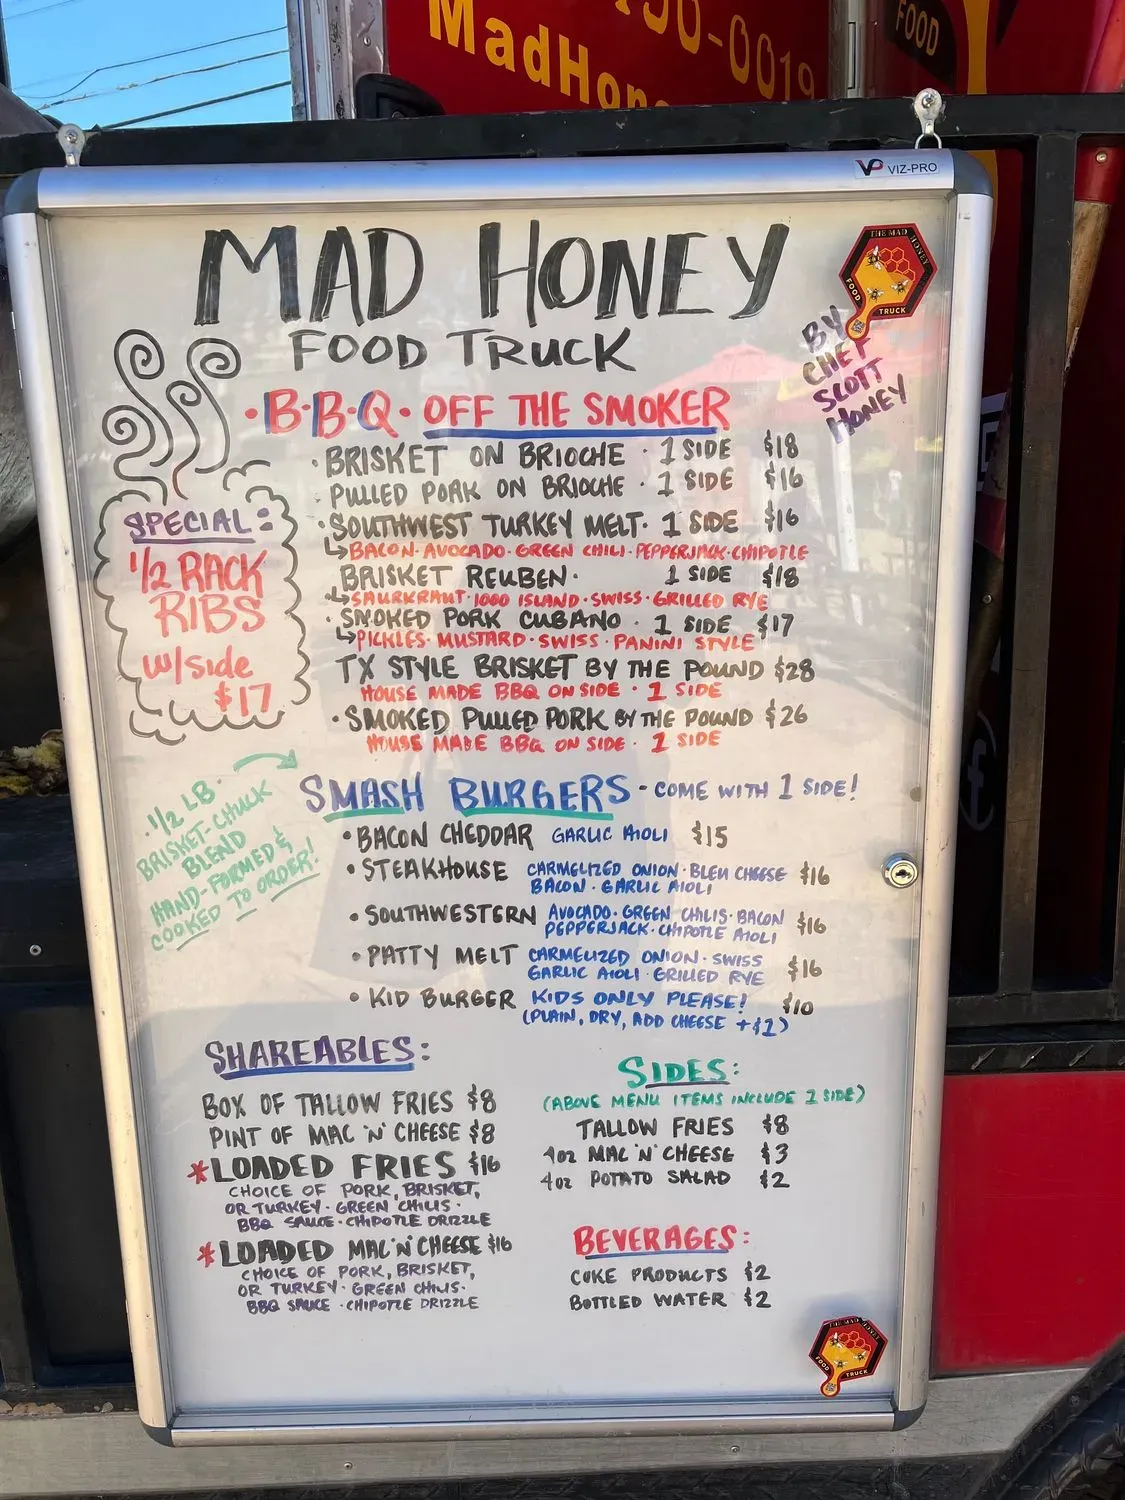 50-0019
MadHon
FOOD
VP VIZ-PRO
MAD HONEY
FOOD TRUCK
THE MAD HONEY
FOOD TRUCK
BY
CHEF
SCOTT
HONEY
· B·B·Q · OFF THE SMOKER
· BRISKET ON BRIOCHE · 1 SIDE $18
· PULLED PORK ON BRIOCHE · 1 SIDE $16
· SOUTHWEST TURKEY MELT · 1 SIDE $16
↳ BACON · AVOCADO · GREEN CHILI · PEPPERJACK · CHIPOTLE
BRISKET REUBEN · 1 SIDE $18
↳ SAURKRAUT · 1000 ISLAND · SWISS · GRILLED RYE
· SMOKED PORK CUBANO · 1 SIDE $17
↳ PICKLES · MUSTARD · SWISS · PANINI STYLE
TX STYLE BRISKET BY THE POUND $28
HOUSE MADE BBQ ON SIDE · 1 SIDE
· SMOKED PULLED PORK BY THE POUND $26
HOUSE MADE BBQ ON SIDE · 1 SIDE
SPECIAL:
1/2 RACK
RIBS
w/side
$17
SMASH BURGERS - COME WITH 1 SIDE!
· 1/2 LB ·
BRISKET-CHUCK
BLEND
HAND-FORMED &
COOKED TO ORDER!
• BACON CHEDDAR GARLIC AIOLI $15
• STEAKHOUSE CARMELIZED ONION · BLEU CHEESE $16
BACON · GARLIC AIOLI
• SOUTHWESTERN AVOCADO · GREEN CHILIS · BACON $16
PEPPERJACK · CHIPOTLE AIOLI
• PATTY MELT CARMELIZED ONION · SWISS $16
GARLIC AIOLI · GRILLED RYE
• KID BURGER KIDS ONLY PLEASE! $10
(PLAIN, DRY, ADD CHEESE +$1)
SHAREABLES:
BOX OF TALLOW FRIES $8
PINT OF MAC 'N' CHEESE $8
*LOADED FRIES $16
CHOICE OF PORK, BRISKET,
OR TURKEY · GREEN CHILIS ·
BBQ SAUCE · CHIPOTLE DRIZZLE
*LOADED MAC 'N' CHEESE $16
CHOICE OF PORK, BRISKET,
OR TURKEY · GREEN CHILIS ·
BBQ SAUCE · CHIPOTLE DRIZZLE
SIDES:
(ABOVE MENU ITEMS INCLUDE 1 SIDE)
TALLOW FRIES $8
4oz MAC 'N' CHEESE $3
4oz POTATO SALAD $2
BEVERAGES:
COKE PRODUCTS $2
BOTTLED WATER $2
THE MAD HONEY
FOOD TRUCK